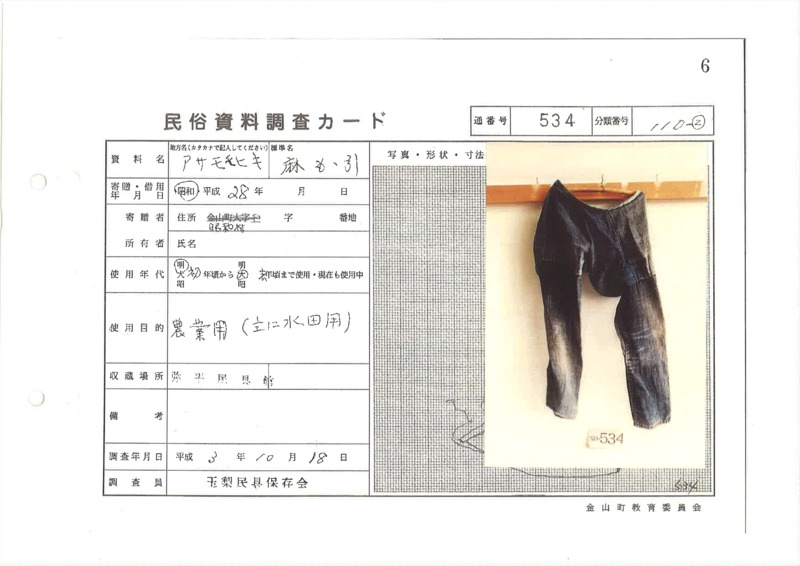 6
民俗資料調査カード
通番号 534 分類番号 110-②
資料名 地方名(カタカナで記入してください) アサモモヒキ 標準名 麻もゝ引
写真・形状・寸法
寄贈・借用年月日 昭和・平成 28年 月 日
寄贈者 住所 金山町大字 字 番地
昭和村
所有者 氏名
使用年代 明大昭 初年頃から 明大昭 末年頃まで使用・現在も使用中
使用目的 農業用(主に水田用)
収蔵場所 弥平民具館
備考
調査年月日 平成 3年 10月 18日
調査員 玉梨民具保存会
No.534
534
金山町教育委員会